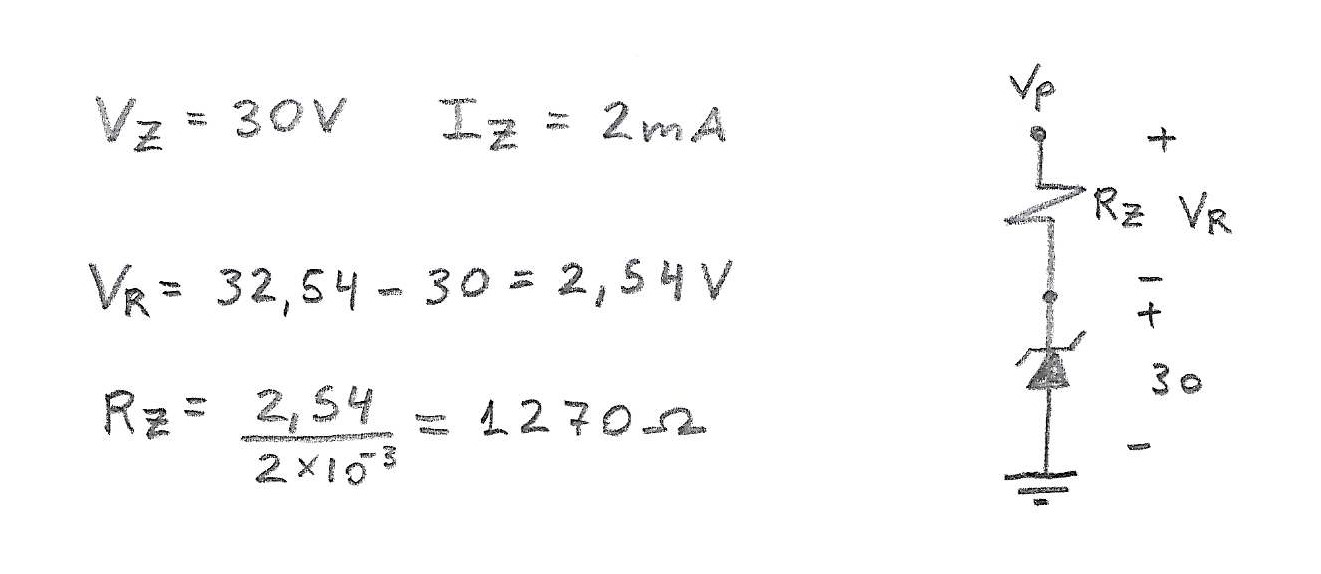 V_Z = 30V I_Z = 2mA
V_R = 32,54 - 30 = 2,54 V
R_Z = 2,54 / 2×10^-3 = 1270 Ω
V_P
+
R_Z V_R
-
+
30
-